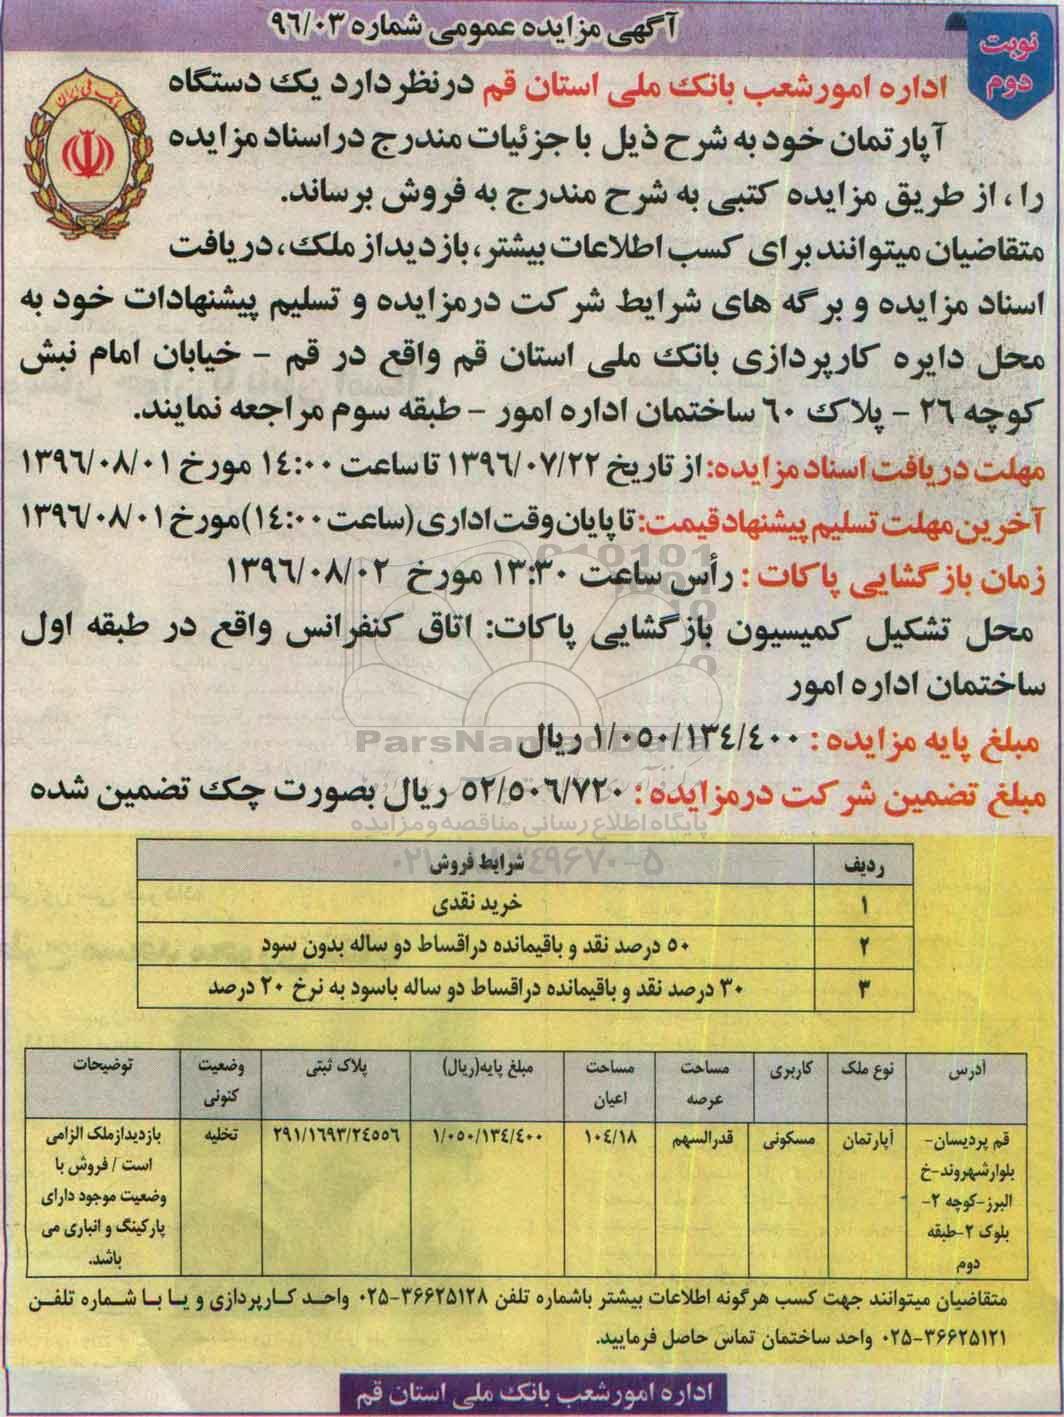 آگهی مزایده عمومی شماره ۹۶/۰۳
نوبت
دوم
بانک ملی ایران
اداره امور شعب بانک ملی استان قم در نظر دارد یک دستگاه
آپارتمان خود به شرح ذیل با جزئیات مندرج در اسناد مزایده
را، از طریق مزایده کتبی به شرح مندرج به فروش برساند.
متقاضیان میتوانند برای کسب اطلاعات بیشتر، بازدید از ملک، دریافت
اسناد مزایده و برگه های شرایط شرکت در مزایده و تسلیم پیشنهادات خود به
محل دایره کارپردازی بانک ملی استان قم واقع در قم - خیابان امام نبش
کوچه ۲۶ - پلاک ۶۰ ساختمان اداره امور - طبقه سوم مراجعه نمایند.
مهلت دریافت اسناد مزایده: از تاریخ ۱۳۹۶/۰۷/۲۲ تا ساعت ۱۴:۰۰ مورخ ۱۳۹۶/۰۸/۰۱
آخرین مهلت تسلیم پیشنهاد قیمت: تا پایان وقت اداری (ساعت ۱۴:۰۰) مورخ ۱۳۹۶/۰۸/۰۱
زمان بازگشایی پاکات: رأس ساعت ۱۳:۳۰ مورخ ۱۳۹۶/۰۸/۰۲
محل تشکیل کمیسیون بازگشایی پاکات: اتاق کنفرانس واقع در طبقه اول
ساختمان اداره امور
مبلغ پایه مزایده: ۱/۰۵۰/۱۳۴/۴۰۰ ریال
ParsNamadData
مبلغ تضمین شرکت در مزایده: ۵۲/۵۰۶/۷۲۰ ریال بصورت چک تضمین شده
پایگاه اطلاع رسانی مناقصه و مزایده
ردیف شرایط فروش
۱ خرید نقدی
۲ ۵۰ درصد نقد و باقیمانده در اقساط دو ساله بدون سود
۳ ۳۰ درصد نقد و باقیمانده در اقساط دو ساله با سود به نرخ ۲۰ درصد
آدرس نوع ملک کاربری مساحت عرصه مساحت اعیان مبلغ پایه(ریال) پلاک ثبتی وضعیت کنونی توضیحات
قم پردیسان- آپارتمان مسکونی قدرالسهم ۱۰۴/۱۸ ۱/۰۵۰/۱۳۴/۴۰۰ ۲۹۱/۱۶۹۳/۲۴۵۵۶ تخلیه بازدید از ملک الزامی
بلوار شهروند-خ است / فروش با
البرز-کوچه ۲- وضعیت موجود دارای
بلوک ۲-طبقه پارکینگ و انباری می
دوم باشد.
متقاضیان میتوانند جهت کسب هرگونه اطلاعات بیشتر باشماره تلفن ۳۶۶۲۵۱۲۸-۰۲۵ واحد کارپردازی و یا با شماره تلفن
۳۶۶۲۵۱۲۱-۰۲۵ واحد ساختمان تماس حاصل فرمایید.
اداره امور شعب بانک ملی استان قم